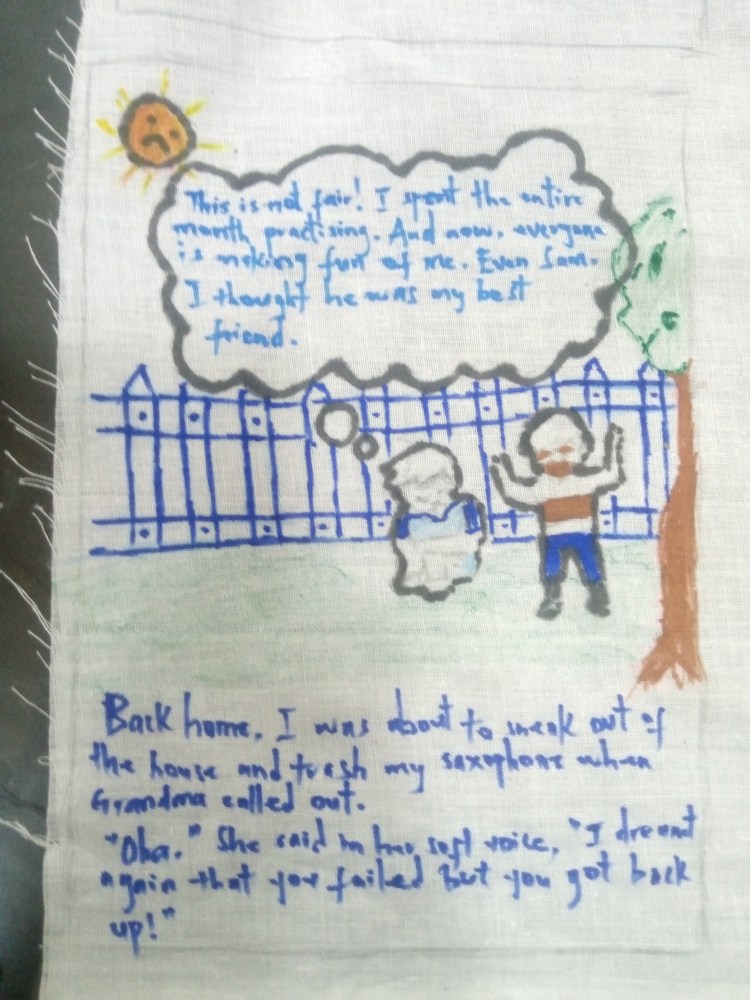 This is not fair! I spent the entire
month practising. And now, everyone
is making fun of me. Even Sam.
I thought he was my best
friend.
Back home, I was about to sneak out of
the house and trash my saxophone when
Grandma called out.
"Oba." She said in her soft voice, "I dreamt
again that you failed but you got back
up!"